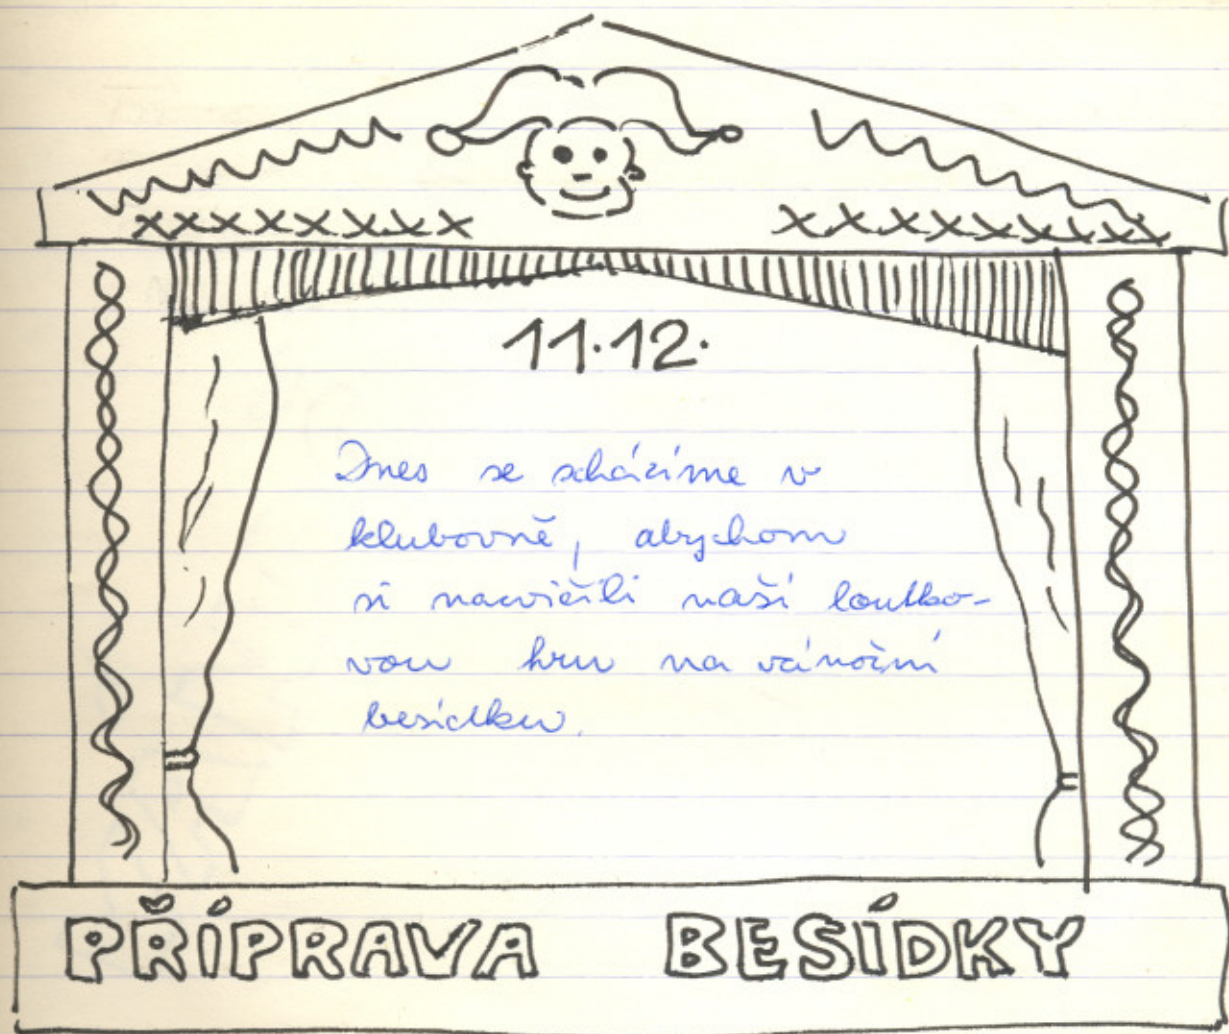 11.12.
Dnes se scházíme v
klubovně, abychom
si nacvičili naší loutko-
vou hru na vánoční
besídku.
PŘÍPRAVA BESÍDKY